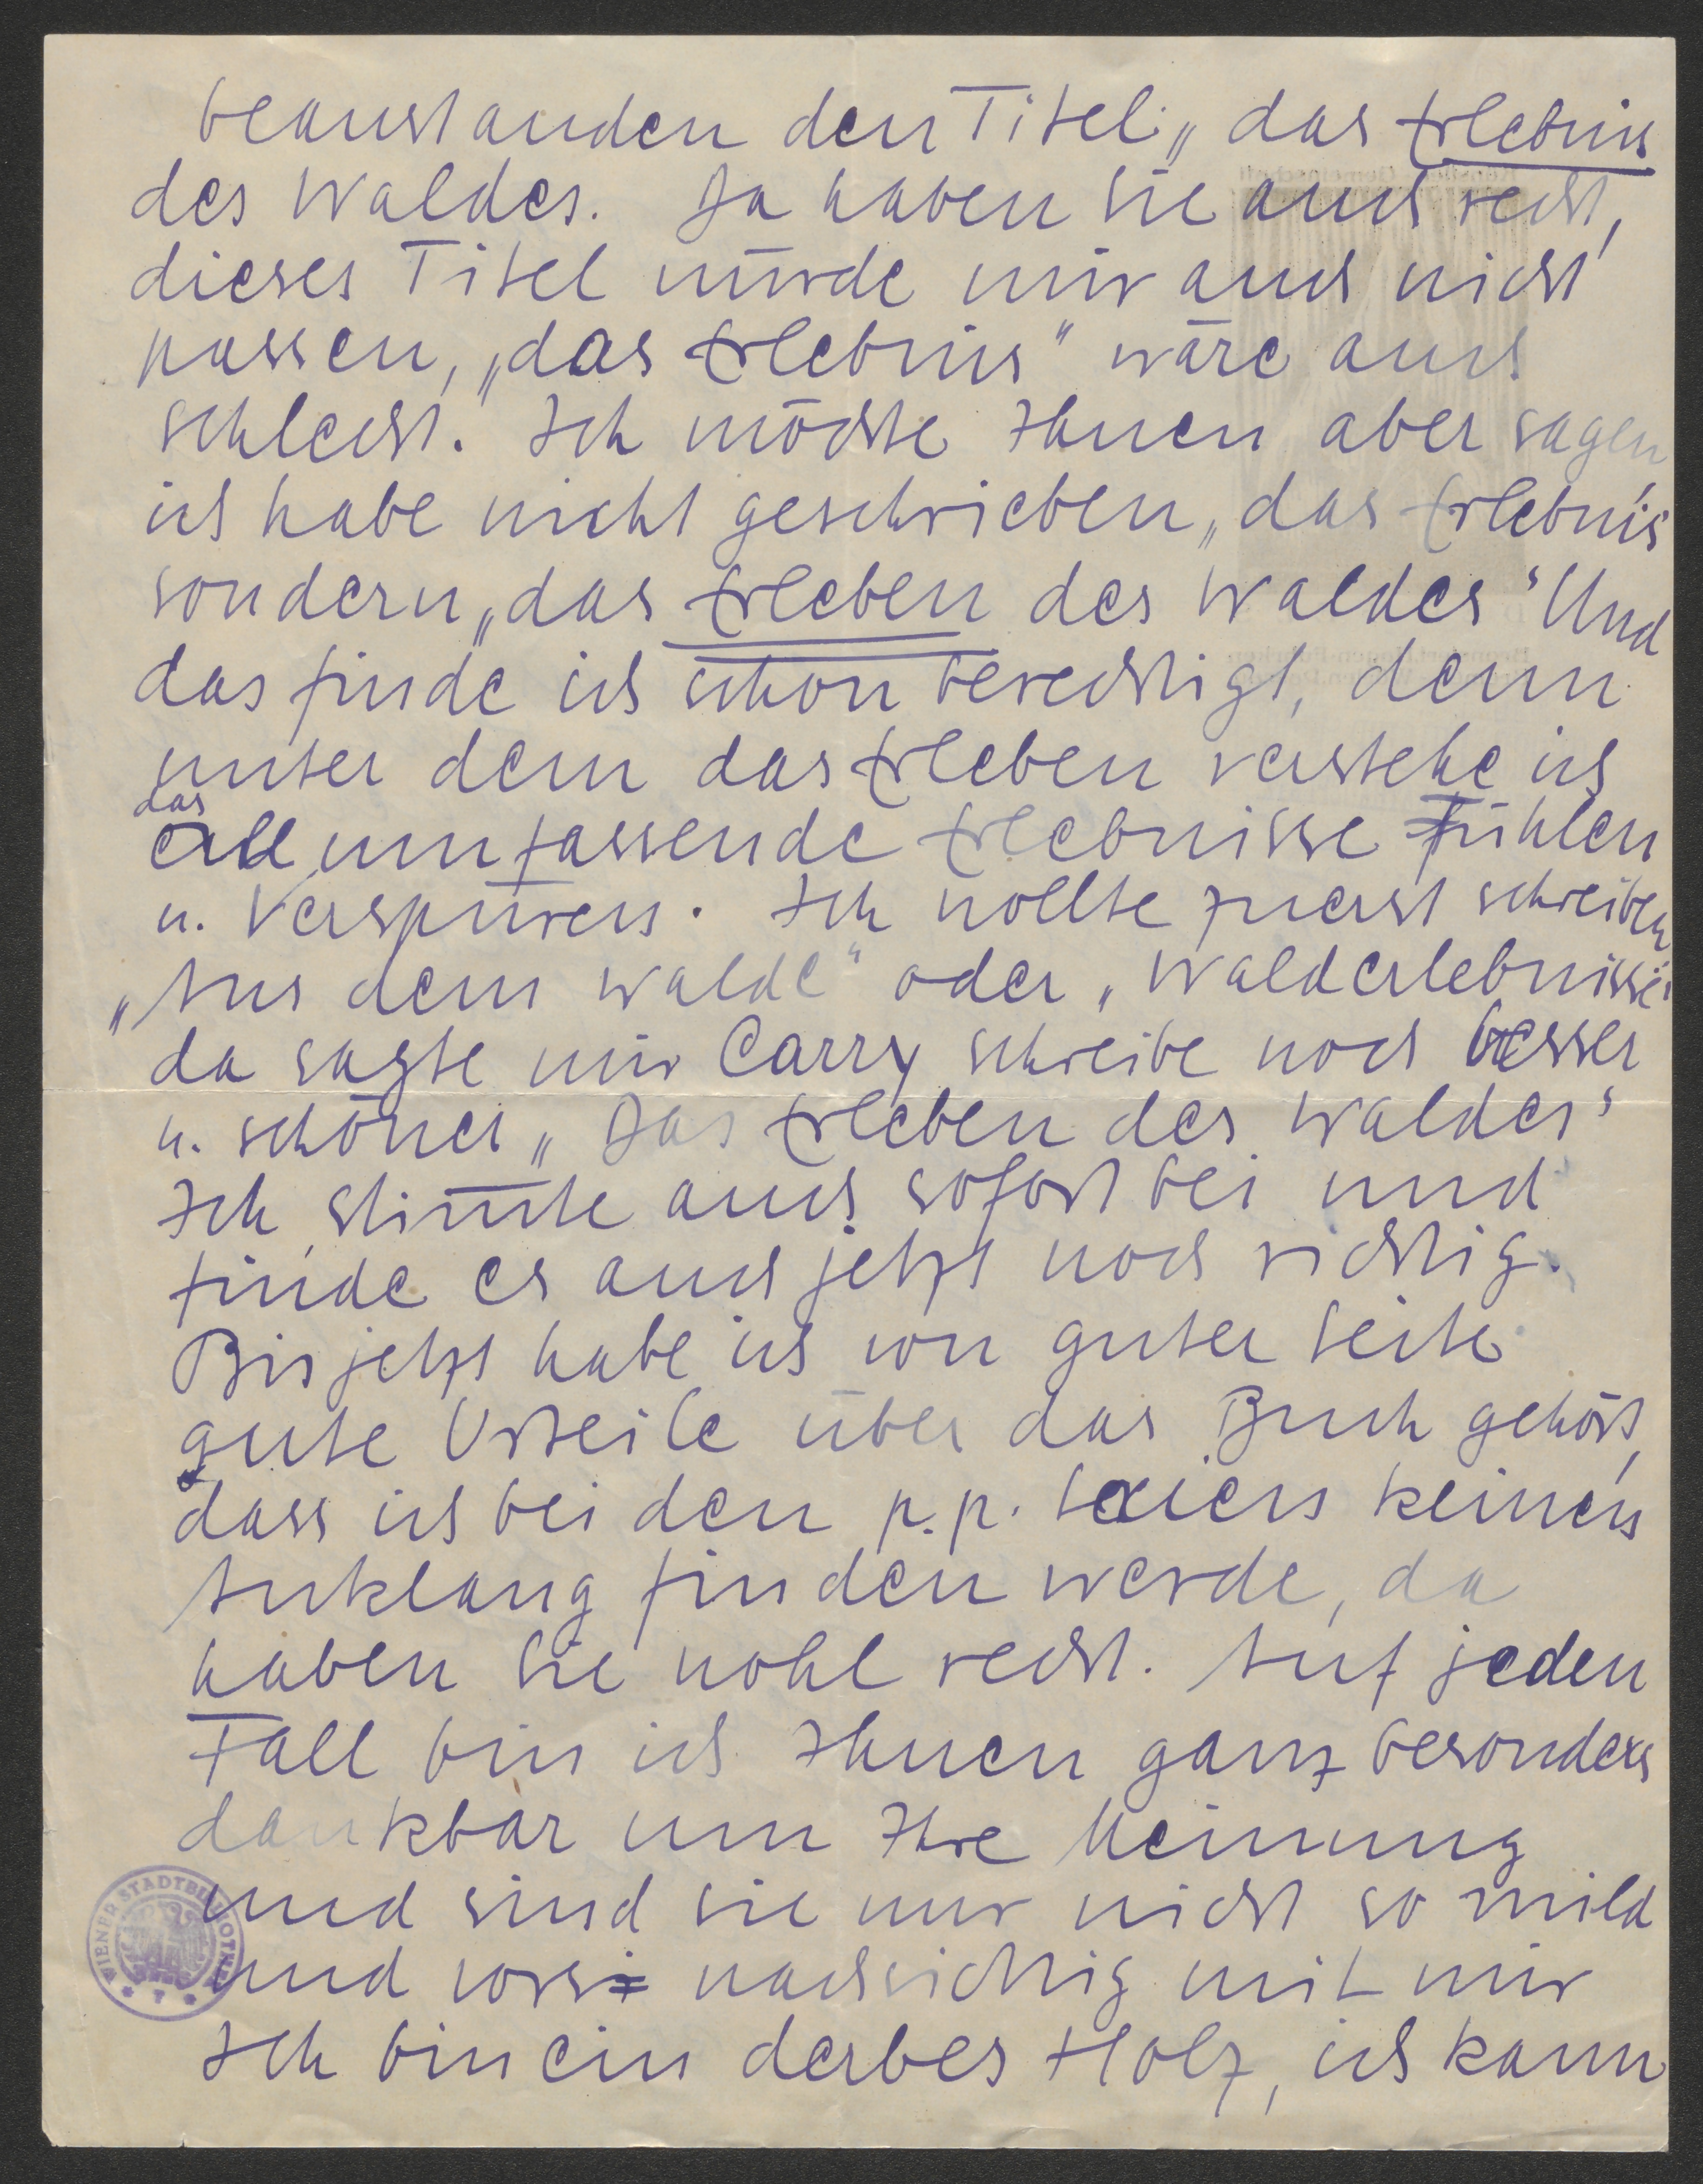 beanstanden den Titel „das Erlebnis
des Waldes. Da haben Sie auch recht,
dieses Titel würde mir auch nicht
passen, „das Erlebnis" wäre auch
schlecht. Ich möchte Ihnen aber sagen,
ich habe nicht geschrieben „das Erlebnis"
sondern „das Erleben des Waldes" Und
das finde ich schon berechtigt, denn
unter dem das Erleben verstehe ich
das
all umfassende Erlebnisse Fühlen
u. Verspüren. Ich wollte zuerst schreiben
„Aus dem Walde" oder „Walderlebnisse"
da sagte mir Carry schreibe noch besser
u. schöner „Das Erleben des Waldes"
Ich stimte auch sofort bei und
finde es auch jetzt noch richtig.
Bis jetzt habe ich von guter Seite
gute Urteile über das Buch gehört,
dass ich bei den p.p. keinen
Anklang finden werde, da
haben Sie wohl recht. Auf jeden
Fall bin ich Ihnen ganz besonders
dankbar um Ihre Meinung
und sind sie nur nicht so mild
und vorsi nachsichtig mit mir
Ich bin ein derbes Holz, ich kann
WIENER STADTBIBLIOTHEK